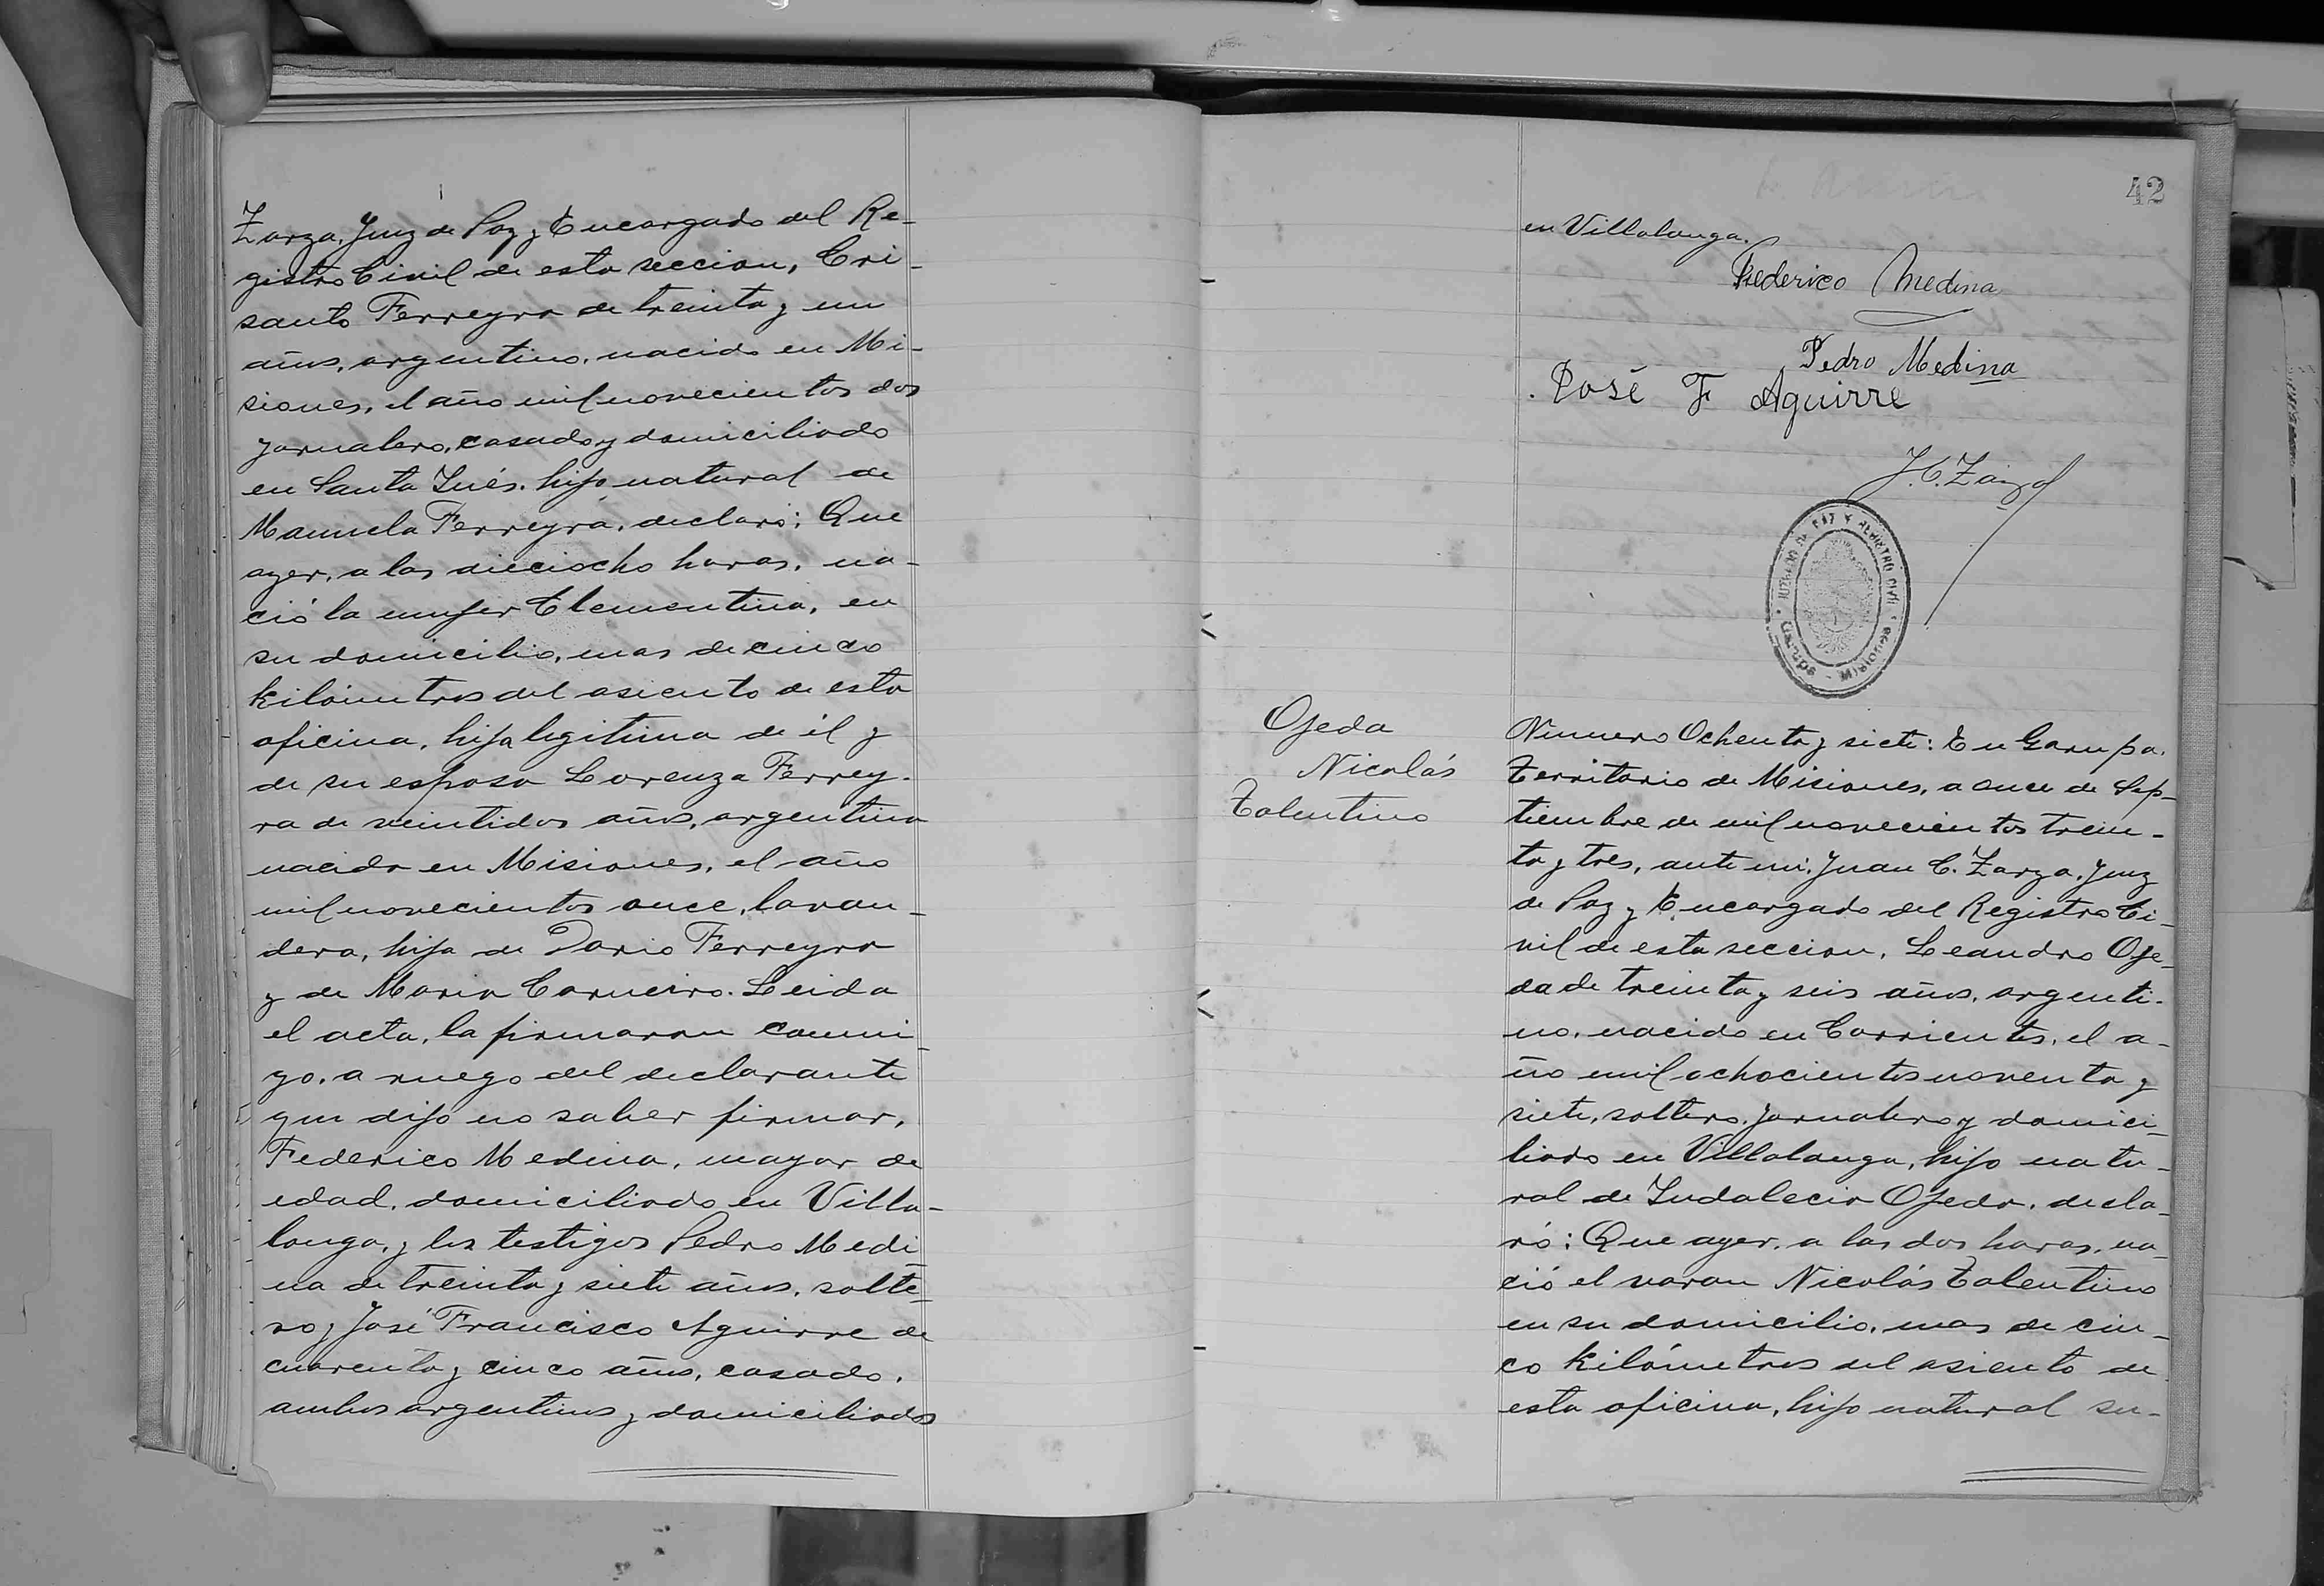 Zarza, Juez de Paz y Encargado del Re-
gistro Civil de esta seccion, Cri-
santo Ferreyra de treinta y un
años, argentino, nacido en Mi-
siones, el año mil novecientos dos
jornalero, casado y domiciliado
en Santa Inés, hijo natural de
Manuela Ferreyra, declaró: Que
ayer, a las dieciocho horas, na-
ció la mujer Clementina, en
su domicilio, mas de cinco
kilómetros del asiento de esta
oficina, hija legitima de él y
de su esposa Lorenza Ferrey-
ra de veintidos años, argentina
nacida en Misiones, el año
mil novecientos once, lavan-
dera, hija de Dario Ferreyra
y de Maria Carneiro. Leida
el acta, la firmaron conmi-
go, a ruego del declarante
que dijo no saber firmar,
Federico Medina, mayor de
edad, domiciliado en Villa-
longa, y los testigos Pedro Medi-
na de treinta y siete años, solte-
ro y José Francisco Aguirre de
cuarenta y cinco años, casado,
ambos argentinos y domiciliados
42
en Villalonga.
Federico Medina
Pedro Medina
José F Aguirre
J. C. Zarza
JUZGADO DE PAZ Y REGISTRO CIVIL
MISIONES
Ojeda
Nicolás
Tolentino
Número Ochenta y siete: En Garupa,
Territorio de Misiones, a once de Sep-
tiembre de mil novecientos trein-
ta y tres, ante mi, Juan C. Zarza, Juez
de Paz y Encargado del Registro Ci-
vil de esta seccion, Leandro Oje-
da de treinta y seis años, argenti-
no, nacido en Corrientes, el a-
ño mil ochocientos noventa y
siete, soltero, jornalero y domici-
liado en Villalonga, hijo natu-
ral de Indalecia Ojeda, decla-
ró: Que ayer, a las dos horas, na-
ció el varon Nicolás Tolentino
en su domicilio, mas de cin-
co kilómetros del asiento de
esta oficina, hijo natural su-